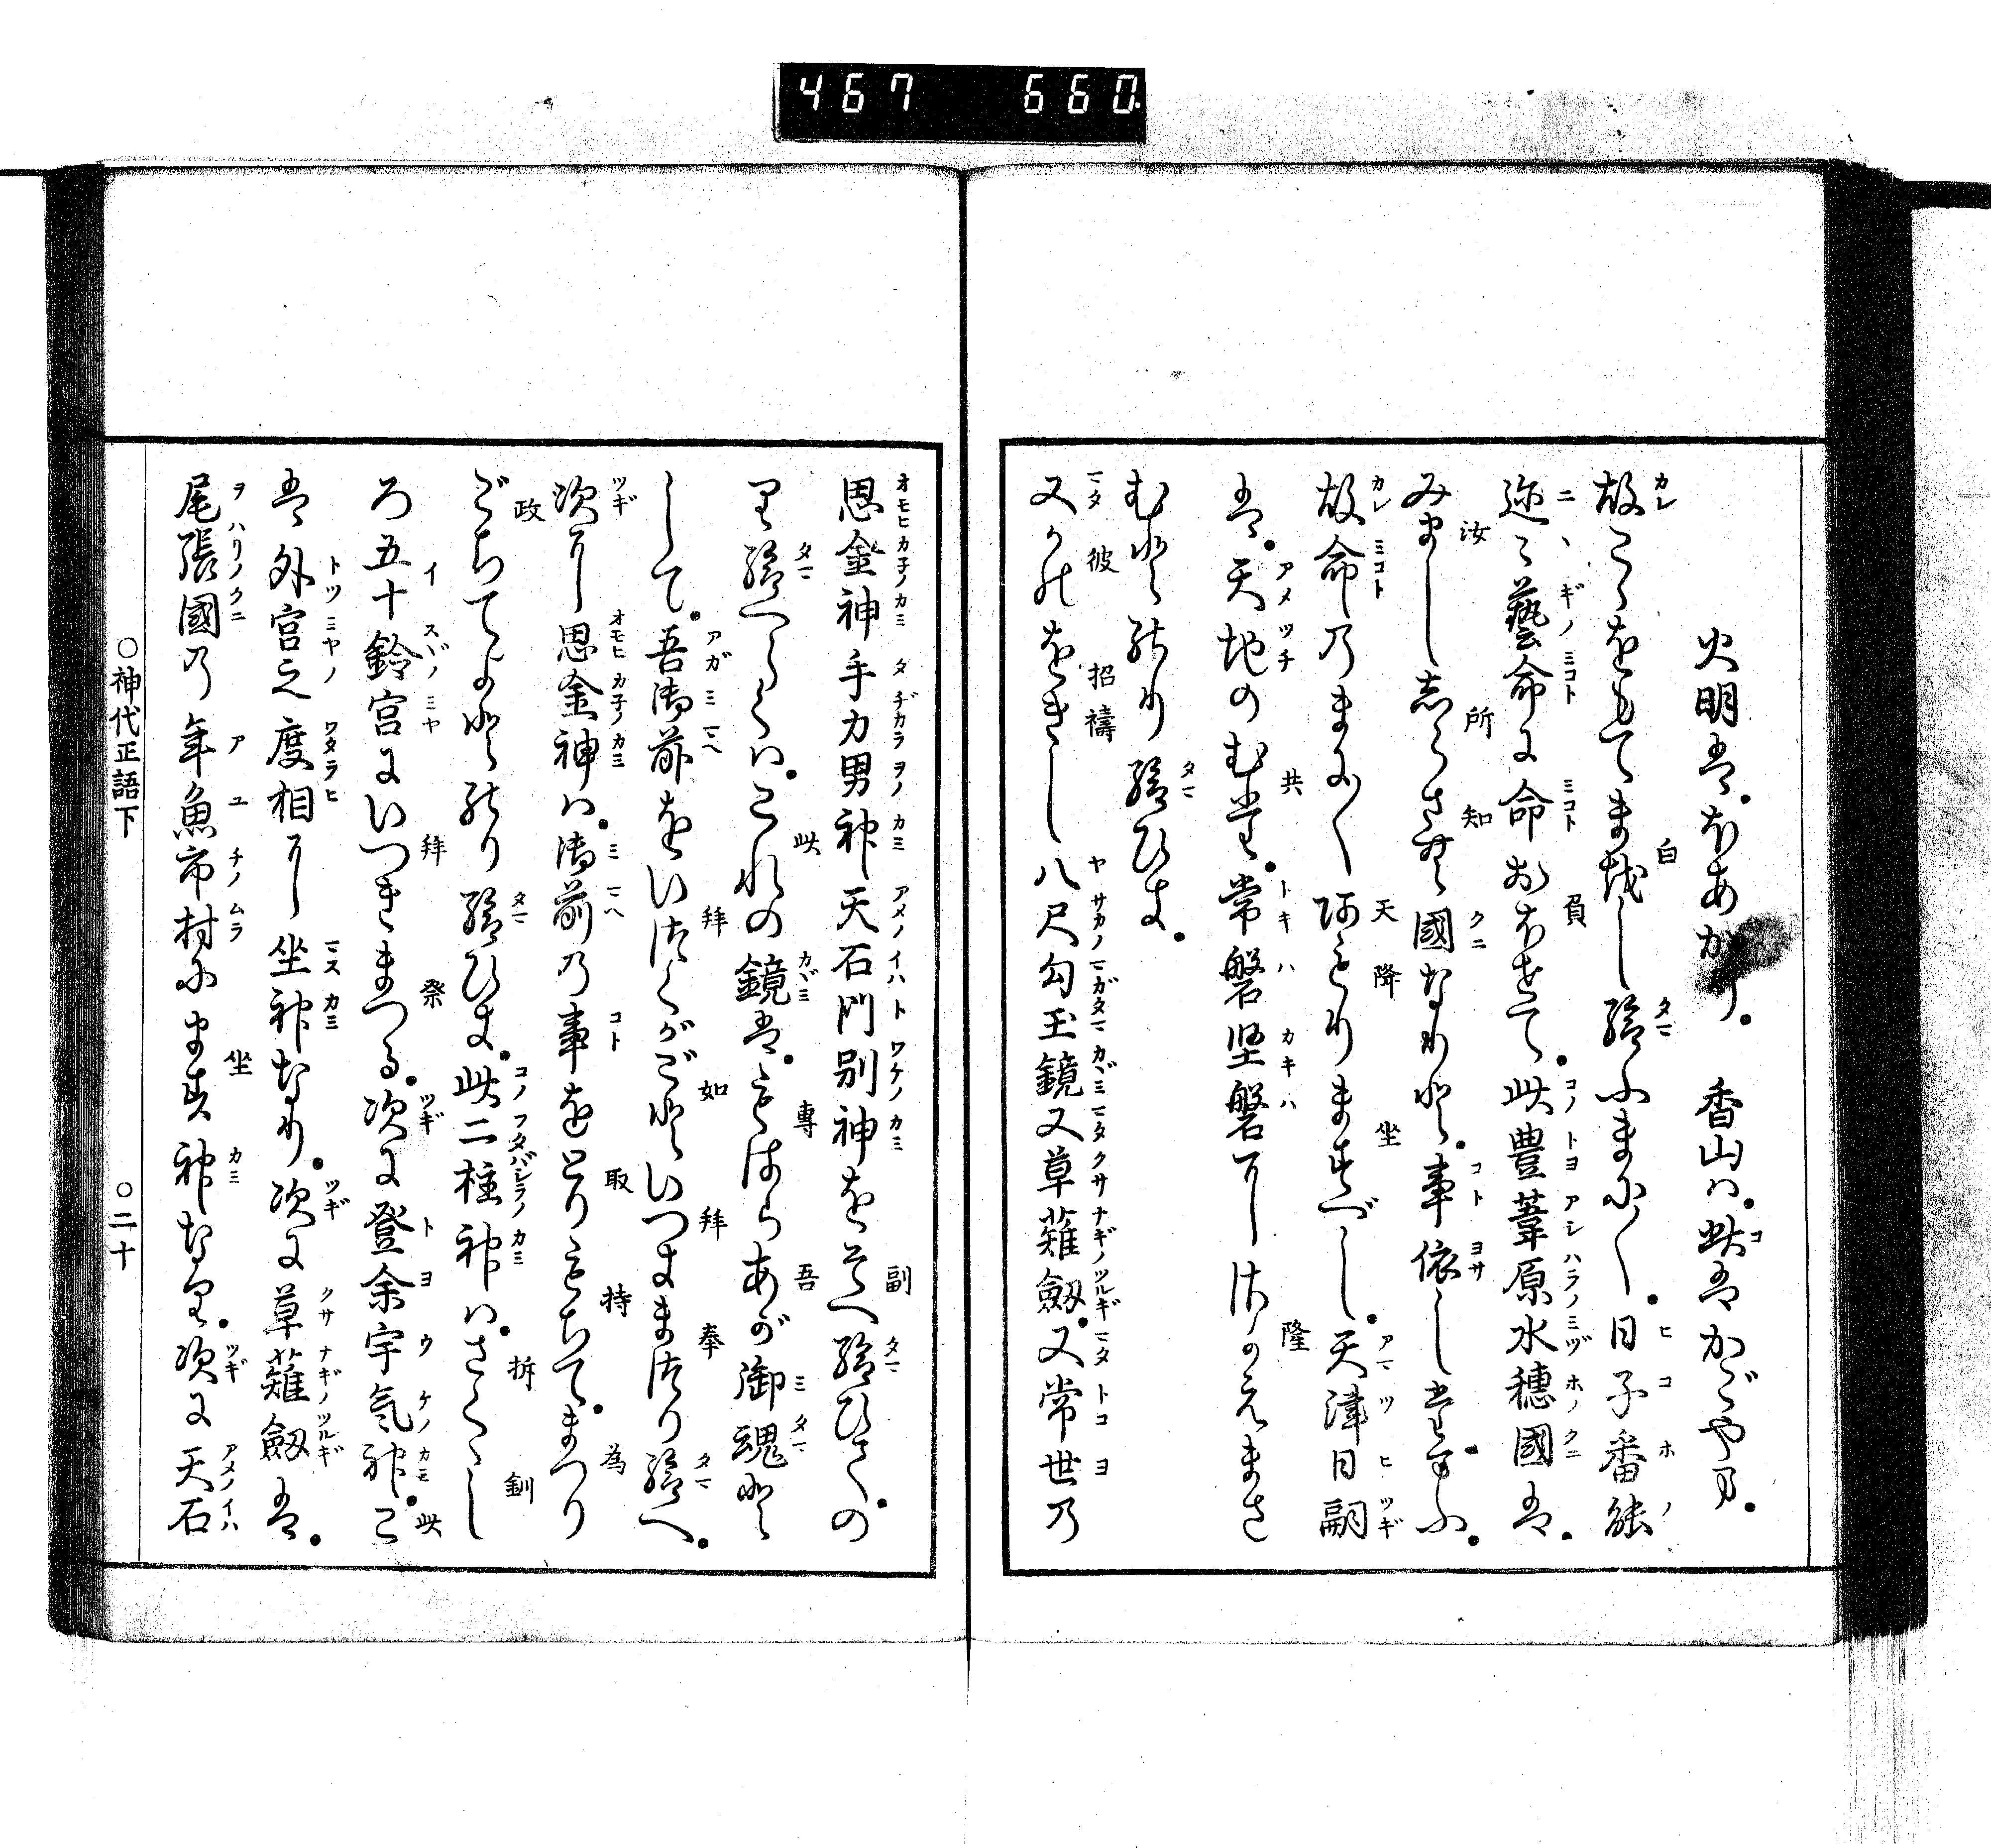 467 660
火明は。ほあかり。 香山は。此はかごやま。
故こゝをもてまをし給ふまに〱。日子番能
迩々藝命に命おほせて。此豊葦原水穂國は。
みまししらさむ國なりと。事依したまふ。
故命のまに〱阿もりますべし。天津日嗣
は。天地のむた。常磐堅磐にさかえまさ
むとのり給ひき。
又かのをきし八尺勾玉鏡又草薙劔。又常世の
思金神手力男神天石門別神をそへ給ひて。の
り給へらくは。これの鏡は。もはらあが御魂と
して。吾御前をいつくがごといつきまつり給へ。
次に思金神は。御前の事をとりもちて。まつり
ごちてよとのり給ひき。此二柱神は。さくゝし
ろ五十鈴宮にいつきまつる。次に登余宇氣神。こ
は外宮之度相に坐神なり。次に草薙劔は。
尾張國の年魚市村にます神なり。次に天石
○神代正語下 ○二十